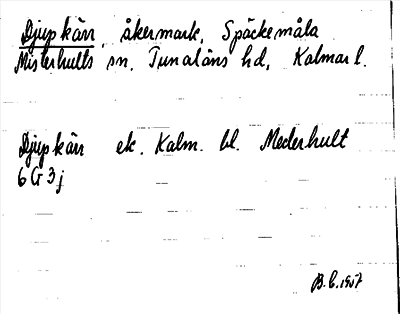 Djupkärr, åkermark, Späckemåla
Misterhults sn, Tunaläns hd, Kalmar l.
Djupkärr ek. Kalm. bl. Mederhult
6 G 3 j